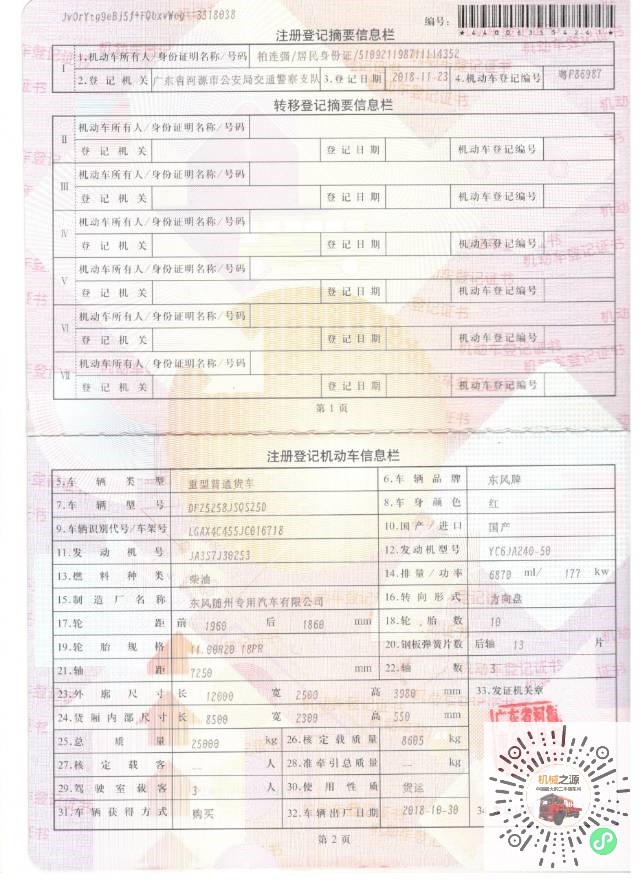 编号:
*440063554241*
注册登记摘要信息栏
I 1.机动车所有人/身份证明名称/号码 柏连强/居民身份证/510921198711114352
2.登记机关 广东省河源市公安局交通警察支队 3.登记日期 2018-11-23 4.机动车登记编号 粤P86987
转移登记摘要信息栏
II 机动车所有人/身份证明名称/号码
登记机关 登记日期 机动车登记编号
III 机动车所有人/身份证明名称/号码
登记机关 登记日期 机动车登记编号
IV 机动车所有人/身份证明名称/号码
登记机关 登记日期 机动车登记编号
V 机动车所有人/身份证明名称/号码
登记机关 登记日期 机动车登记编号
VI 机动车所有人/身份证明名称/号码
登记机关 登记日期 机动车登记编号
VII 机动车所有人/身份证明名称/号码
登记机关 登记日期 机动车登记编号
第1页
注册登记机动车信息栏
5.车辆类型 重型普通货车 6.车辆品牌 东风牌
7.车辆型号 DFZ5258JSQS25D 8.车身颜色 红
9.车辆识别代号/车架号 LGAX4C455JC016718 10.国产/进口 国产
11.发动机号 JA3S7J30253 12.发动机型号 YC6JA240-50
13.燃料种类 柴油 14.排量/功率 6870 ml/ 177 kw
15.制造厂名称 东风随州专用汽车有限公司 16.转向形式 方向盘
17.轮距 前 1960 后 1860 mm 18.轮胎数 10
19.轮胎规格 11.00R20 18PR 20.钢板弹簧片数 后轴 13 片
21.轴距 7250 mm 22.轴数 3
23.外廓尺寸 长 12000 宽 2500 高 3980 mm 33.发证机关章
24.货厢内部尺寸 长 8500 宽 2309 高 550 mm
25.总质量 25000 kg 26.核定载质量 8605 kg
27.核定载客 — 人 28.准牵引总质量 — kg
29.驾驶室载客 3 人 30.使用性质 货运
31.车辆获得方式 购买 32.车辆出厂日期 2018-10-30 34
第2页
机械之源